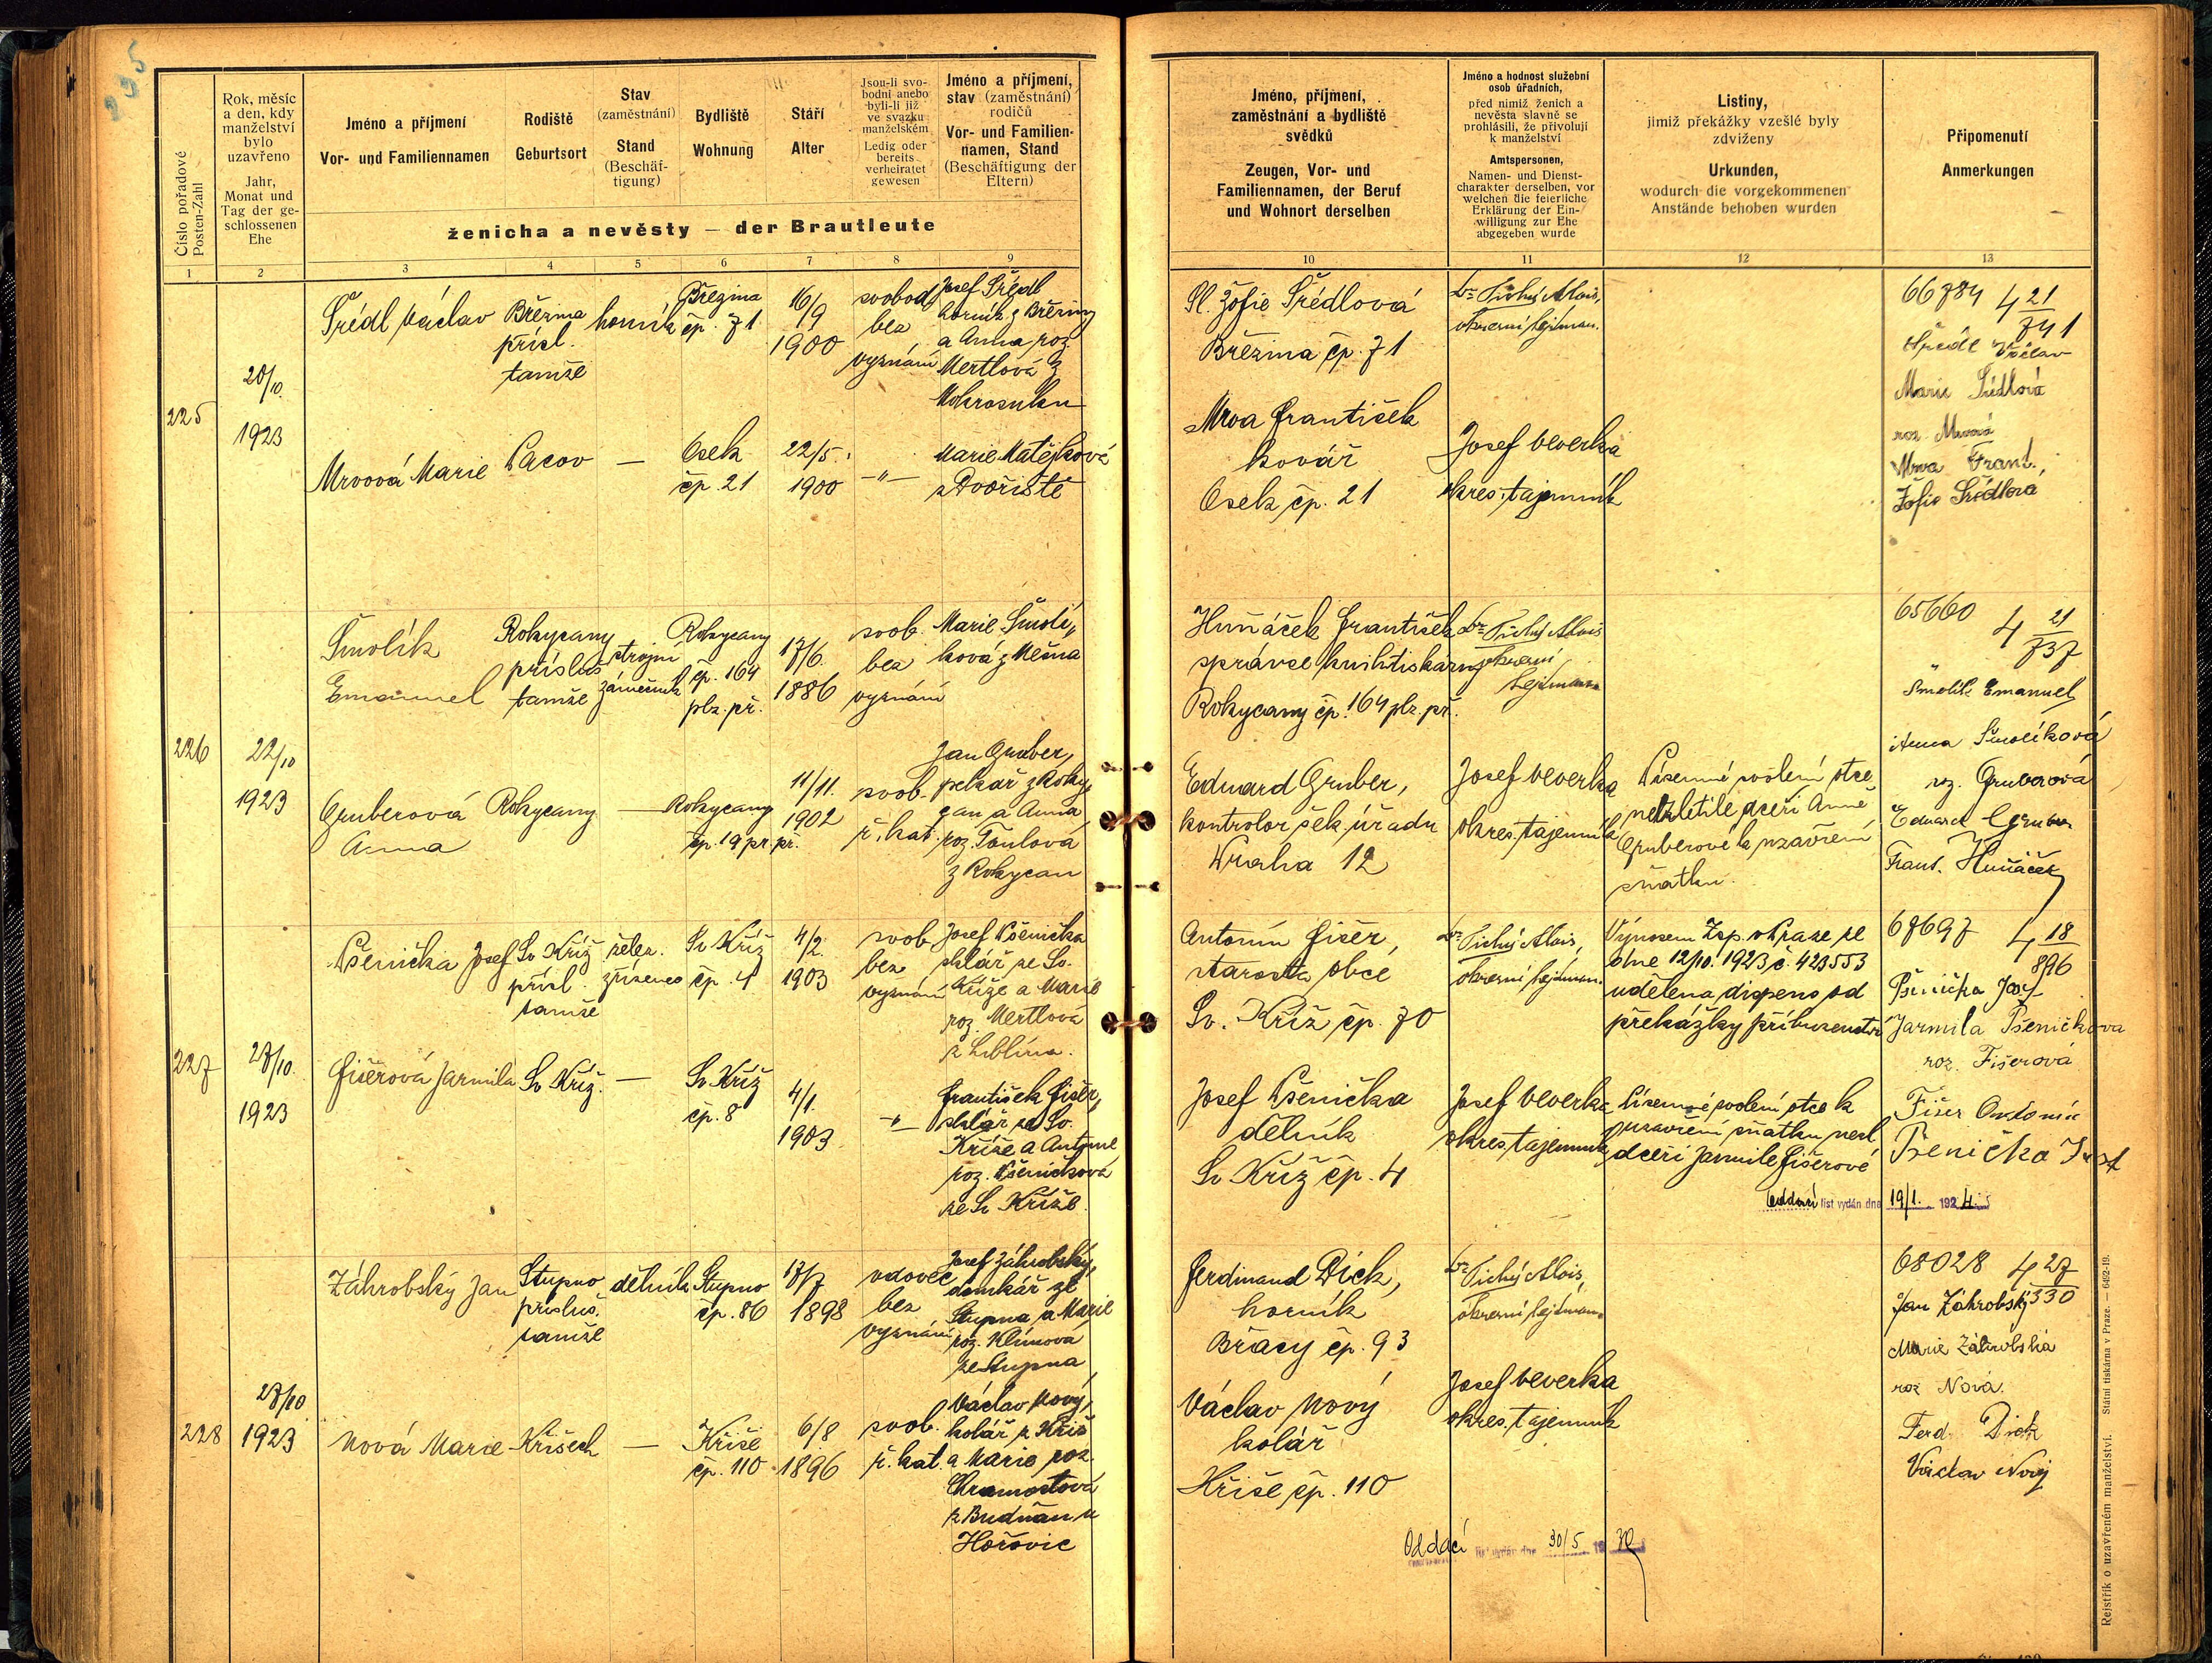 Číslo pořadové
Posten-Zahl
Rok, měsíc
a den, kdy
manželství
bylo
uzavřeno
Jahr,
Monat und
Tag der ge-
schlossenen
Ehe
Jméno a příjmení
Vor- und Familiennamen
Rodiště
Geburtsort
Stav
(zaměstnání)
Stand
(Beschäf-
tigung)
Bydliště
Wohnung
Stáří
Alter
Jsou-li svo-
bodni anebo
byli-li již
ve svazku
manželském
Ledig oder
bereits
verheiratet
gewesen
Jméno a příjmení,
stav (zaměstnání)
rodičů
Vor- und Familien-
namen, Stand
(Beschäftigung der
Eltern)
ženicha a nevěsty — der Brautleute
1 2 3 4 5 6 7 8 9
225
20/10.
1923
Šrédl Václav
Březina
přísl.
tamže
horník
Březina
čp. 71
16/9
1900
svobod,
bez
vyznání
Josef Šrédl
horník z Březiny
a Anna roz.
Mertlová z
Mokrosuku
Mrvová Marie
Pacov
—
Osek
čp. 21
22/5.
1900
—"—
Marie Matějková
z Dvořiště
226
22/10
1923
Šmolík
Emanuel
Rokycany
přísluš
tamže
strojní
zámečník
Rokycany
čp. 164
plz. př.
17/6.
1886
svob.
bez
vyznání
Marie Šmolí-
ková z Mešna
Gruberová
Anna
Rokycany
—
Rokycany
čp. 19 pr. př.
11/11.
1902
svob.
ř. kat.
Jan Gruber,
pekař z Roky-
can a Anna
roz. Toulová
z Rokycan
227
27/10.
1923
Pšenička Josef
Sv Kříž
přísl.
tamže
želez.
zřízenec
Sv Kříž
čp. 4
4/2.
1903
svob
bez
vyznání
Josef Pšenička
sklář ze Sv.
Kříže a Marie
roz. Mertlová
z Liblína.
Fišerová Jarmila
Sv Kříž.
—
Sv Kříž
čp. 8
4/1.
1903
—"—
František Fišer,
sklář ze Sv.
Kříže a Antonie
roz. Pšeničková
ze Sv Kříže
228
27/10
1923
Záhrobský Jan
Stupno
přísluš.
tamže
dělník
Stupno
čp. 86
17/7
1898
vdovec
bez
vyznání
Josef Záhrobský,
domkář ze
Stupna a Marie
roz. Klímová
ze Stupna
Nová Marie
Kříšech
—
Kříše
čp. 110
6/8
1896
svob.
ř. kat.
Václav Nový,
kolář z Kříš
a Marie roz.
Chramostová
z Budňan u
Hořovic
Jméno, příjmení,
zaměstnání a bydliště
svědků
Zeugen, Vor- und
Familiennamen, der Beruf
und Wohnort derselben
Jméno a hodnost služební
osob úřadních,
před nimiž ženich a
nevěsta slavně se
prohlásili, že přivolují
k manželství
Amtspersonen,
Namen- und Dienst-
charakter derselben, vor
welchen die feierliche
Erklärung der Ein-
willigung zur Ehe
abgegeben wurde
Listiny,
jimiž překážky vzešlé byly
zdviženy
Urkunden,
wodurch die vorgekommenen
Anstände behoben wurden
Připomenutí
Anmerkungen
10 11 12 13
Sl. Žofie Šrédlová
Březina čp. 71
Mrva František
kovář
Osek čp. 21
Dr Tichý Alois,
okresní hejtman.
Josef Veverka
okres. tajemník
66784 4 21
741
Šrédl Václav
Marie Šrédlová
roz. Mrvová
Mrva Frant.,
Žofie Šrédlová
Huňáček František
správce knihtiskárny
Rokycany čp. 164 plz. př.
Eduard Gruber,
kontrolor šek. úřadu
Praha 12
Dr Tichý Alois
okresní
hejtman
Josef Veverka
okres. tajemník
Písemné svolení otce
nezletilé dceři Anně
Gruberové k uzavření
sňatku.
65660 4 21
737
Šmolík Emanuel
Anna Šmolíková
roz. Gruberová
Eduard Gruber
Frant. Huňáček
Antonín Fišer,
starosta obce
Sv. Kříž čp. 70
Josef Pšenička
dělník
Sv Kříž čp. 4
Dr Tichý Alois,
okresní hejtman.
Josef Veverka
okres. tajemník
Výnosem Zsp. v Praze ze
dne 12/10. 1923 č. 423553
udělena dispens od
překážky příbuzenství
Písemné svolení otce k
uzavření sňatku nezl.
dceři Jarmile Fišerové
Oddací list vydán dne 19/1. 1924.
67697 4 18
896
Pšenička Josef
Jarmila Pšeničkova
roz. Fišerová
Fišer Antonín
Pšenička Josef
Ferdinand Dick,
horník
Břasy čp. 93
Václav Nový
kolář
Kříše čp. 110
Dr Tichý Alois,
okresní hejtman.
Josef Veverka
okres. tajemník
68028 4 27
330
Jan Záhrobský
Marie Záhrobská
roz Nová.
Ferd. Dick
Václav Nový
Oddací list vydán dne 30/5 1930
Rejstřík o uzavřeném manželství. Státní tiskárna v Praze. — 6492-19.